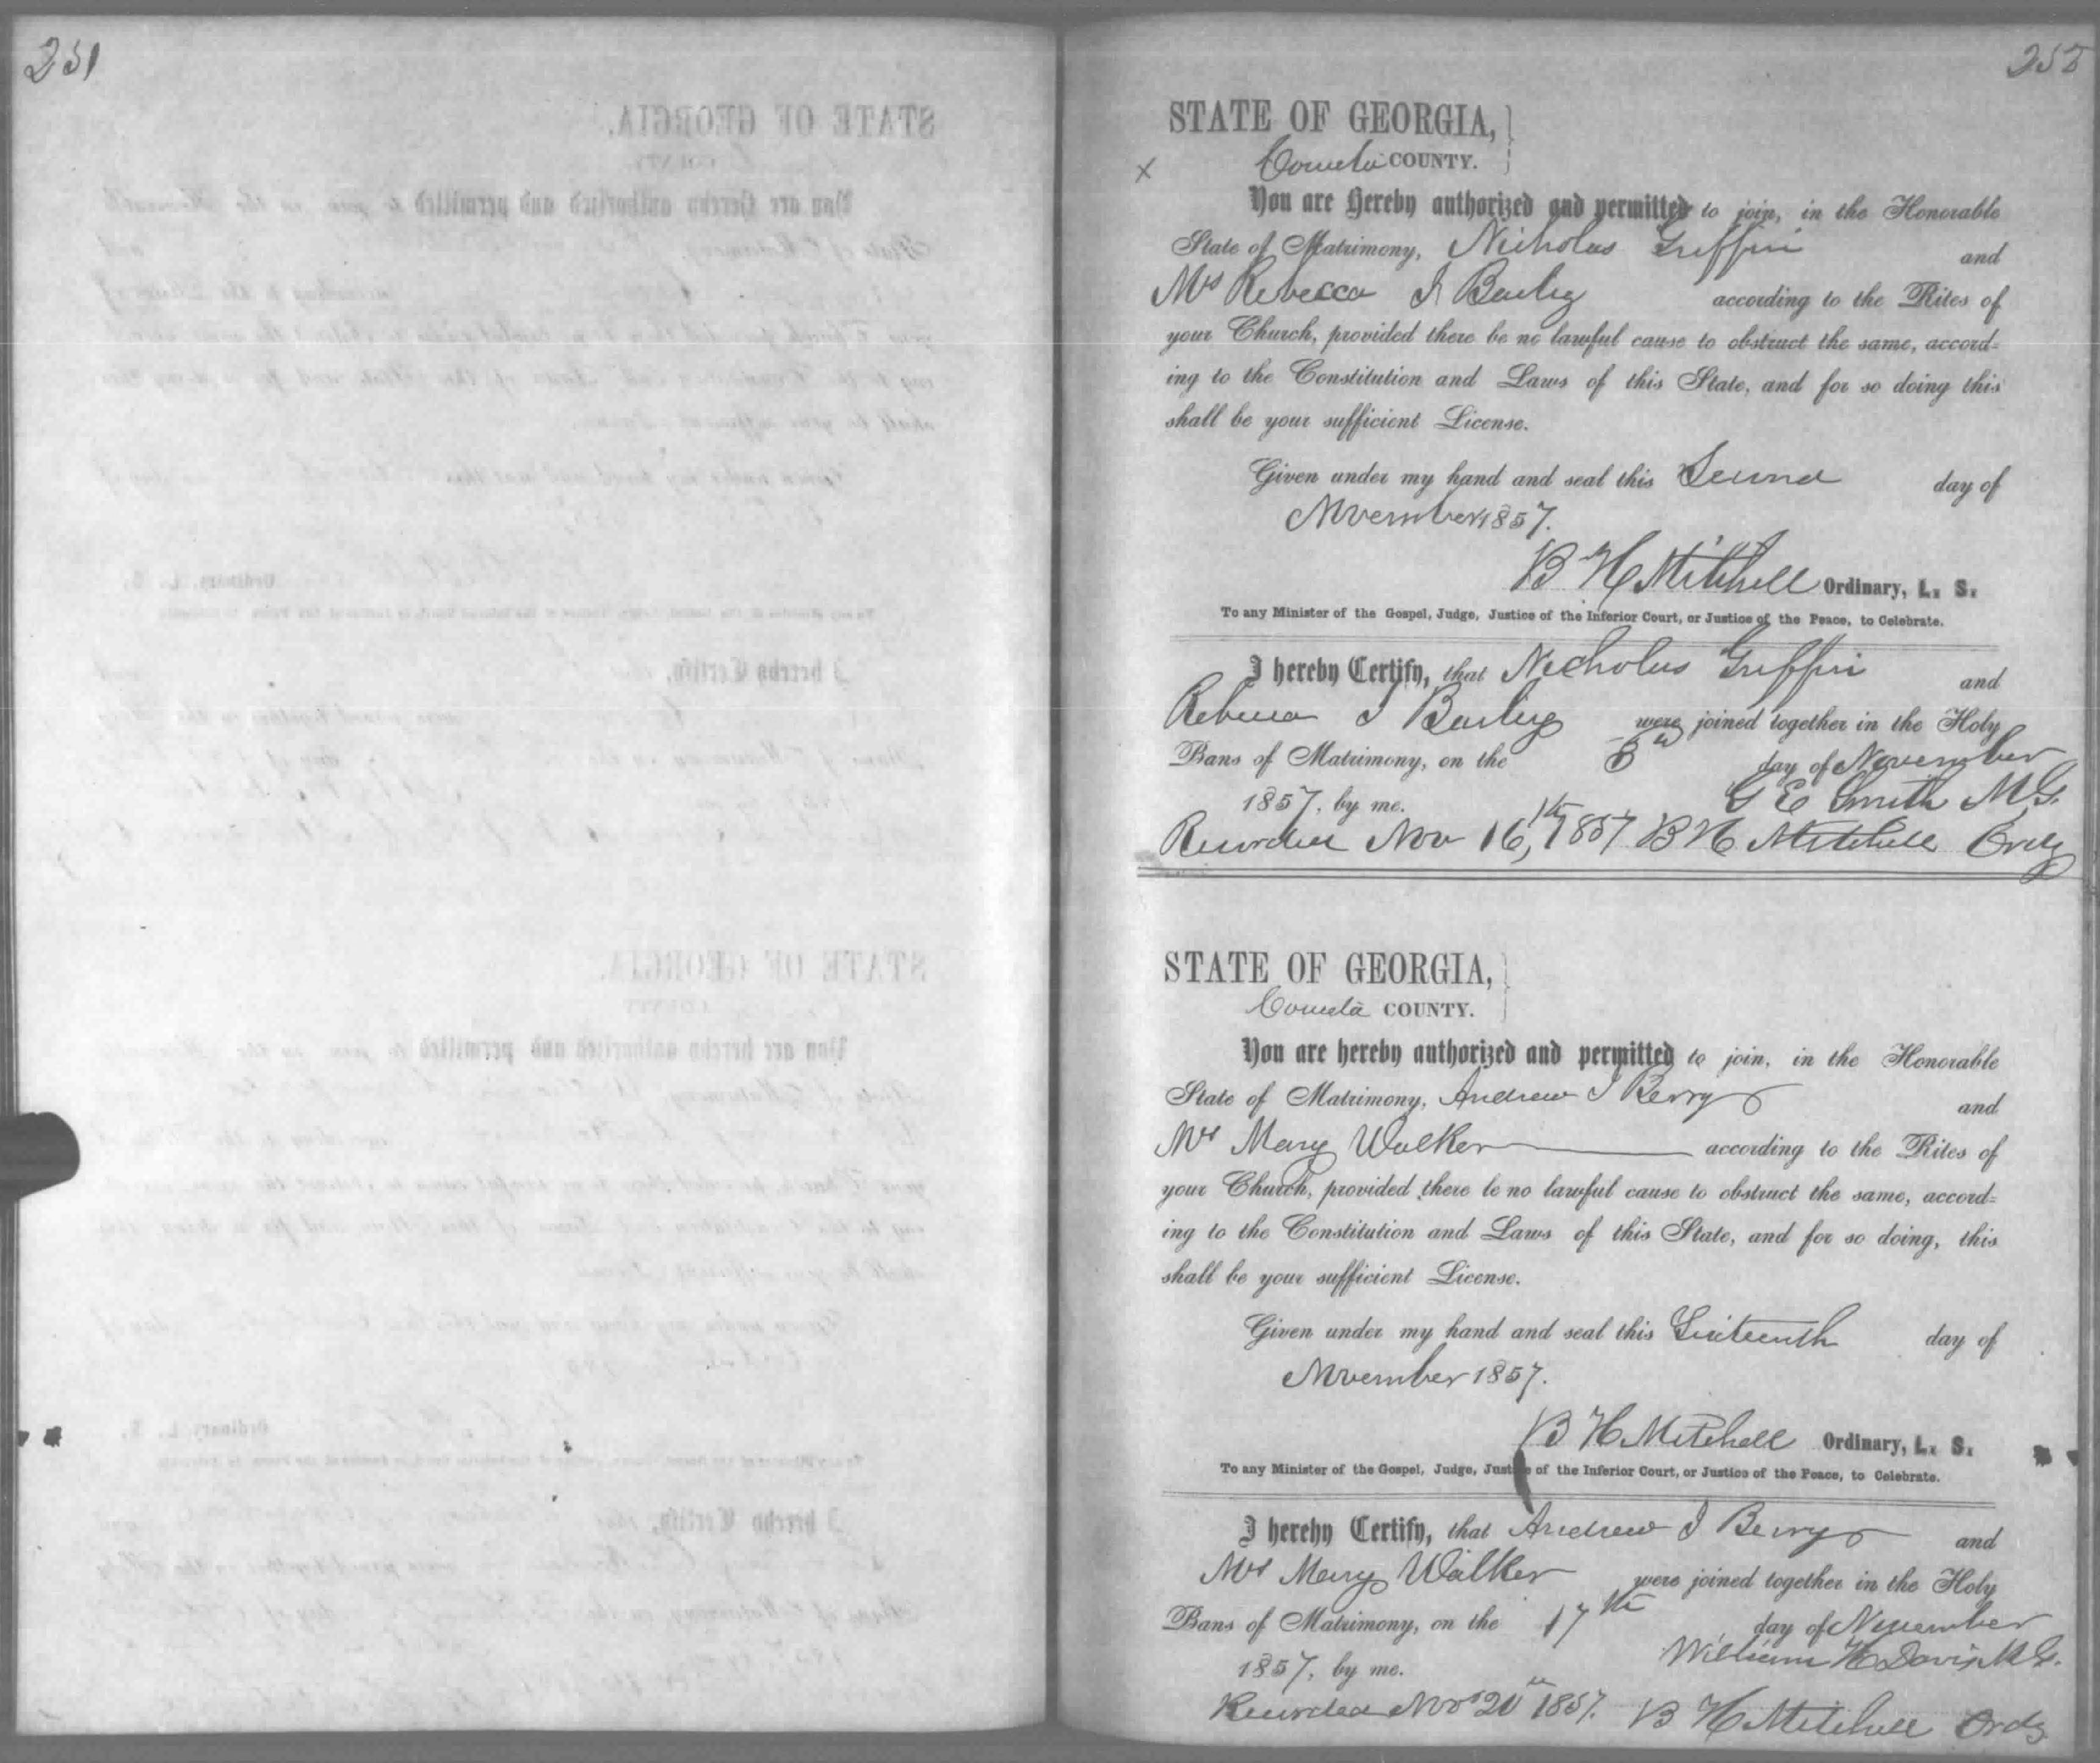 251
252
STATE OF GEORGIA,
Coweta COUNTY.
x
You are Hereby authorized and permitted to join, in the Honorable
State of Matrimony, Nicholas Griffin and
Mrs Rebecca J Bailey according to the Rites of
your Church, provided there be no lawful cause to obstruct the same, accord=
ing to the Constitution and Laws of this State, and for so doing this
shall be your sufficient License.
Given under my hand and seal this Second day of
November 1857.
B H Mitchell Ordinary, L. S.
To any Minister of the Gospel, Judge, Justice of the Inferior Court, or Justice of the Peace, to Celebrate.
I hereby Certify, that Nicholas Griffin and
Rebecca J Bailey were joined together in the Holy
Bans of Matrimony, on the day of November
1857, by me. G E Smith M.G.
Recorded Nov 16th, 1857 B H Mitchell Ordy
STATE OF GEORGIA,
Coweta COUNTY.
You are hereby authorized and permitted to join, in the Honorable
State of Matrimony, Andrew J Berry and
Mrs Mary Walker according to the Rites of
your Church, provided there be no lawful cause to obstruct the same, accord=
ing to the Constitution and Laws of this State, and for so doing, this
shall be your sufficient License.
Given under my hand and seal this Sixteenth day of
November 1857.
B H Mitchell Ordinary, L. S.
To any Minister of the Gospel, Judge, Justice of the Inferior Court, or Justice of the Peace, to Celebrate.
I hereby Certify, that Andrew J Berry and
Mrs Mary Walker were joined together in the Holy
Bans of Matrimony, on the 17th day of November
1857, by me. William H Davis M.G.
Recorded Nov 20th 1857. B H Mitchell Ordy